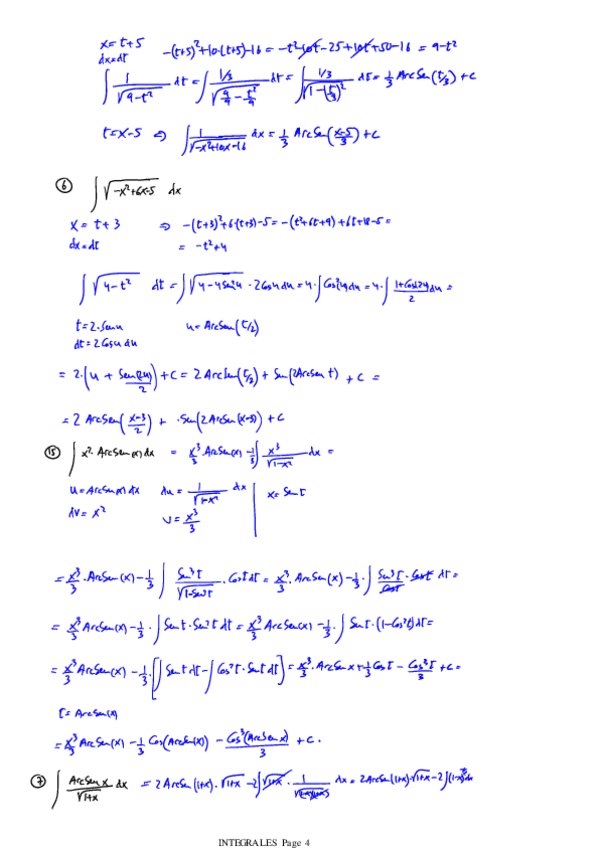 x = t+5    -(t+5)²+10·(t+5)-16 = -t²-10t-25+10t+50-16 = 9-t²
dx=dt
∫ 1/√(9-t²) dt = ∫ (1/3)/√(9/9 - t²/9) dt = ∫ (1/3)/√(1-(t/3)²) dt = 1/3 ArcSen(t/3) + C
t = x-5 ⇒ ∫ 1/√(-x²+10x-16) dx = 1/3 ArcSen(x-5/3) + C
⑥ ∫ √(-x²+6x-5) dx
x = t+3 ⇒ -(t+3)²+6·(t+3)-5 = -(t²+6t+9)+6t+18-5 =
dx=dt = -t²+4
∫ √(4-t²) dt = ∫ √(4-4Sen²u) · 2Cosu du = 4·∫ Cos²u du = 4·∫ (1+Cos2u)/2 du =
t = 2·Senu    u = ArcSen(t/2)
dt = 2Cosu du
= 2·(u + Sen(2u)/2) + C = 2 ArcSen(t/2) + Sen(2ArcSen t) + C =
= 2 ArcSen(x-3/2) + ·Sen(2ArcSen(x-3)) + C
⑮ ∫ x²·ArcSen(x) dx = x³/3 ArcSen(x) - 1/3 ∫ x³/√(1-x²) dx =
u = ArcSen(x) dx    du = 1/√(1-x²) dx    x = Sent
dv = x²    v = x³/3
= x³/3 ·ArcSen(x) - 1/3 ∫ Sen³t/√(1-Sen²t) · Cost dt = x³/3 · ArcSen(x) - 1/3 · ∫ Sen³t/Cost · Cost dt =
= x³/3 ArcSen(x) - 1/3 · ∫ Sent·Sen²t dt = x³/3 ArcSen(x) - 1/3 · ∫ Sent·(1-Cos²t) dt =
= x³/3 ArcSen(x) - 1/3 · [∫ Sent dt - ∫ Cos²t·Sent dt] = x³/3 · ArcSenx + 1/3 Cost - Cos³t/3 + C =
t = ArcSen(x)
= x³/3 ArcSen(x) - 1/3 Cos(ArcSen(x)) - Cos³(ArcSenx)/3 + C.
⑦ ∫ ArcSenx/√(1+x) dx = 2ArcSen(1+x)·√(1+x) - 2∫ √(1+x) · 1/ dx = 2ArcSen(1+x)·√(1+x) - 2∫(1-x) dx
INTEGRALES Page 4